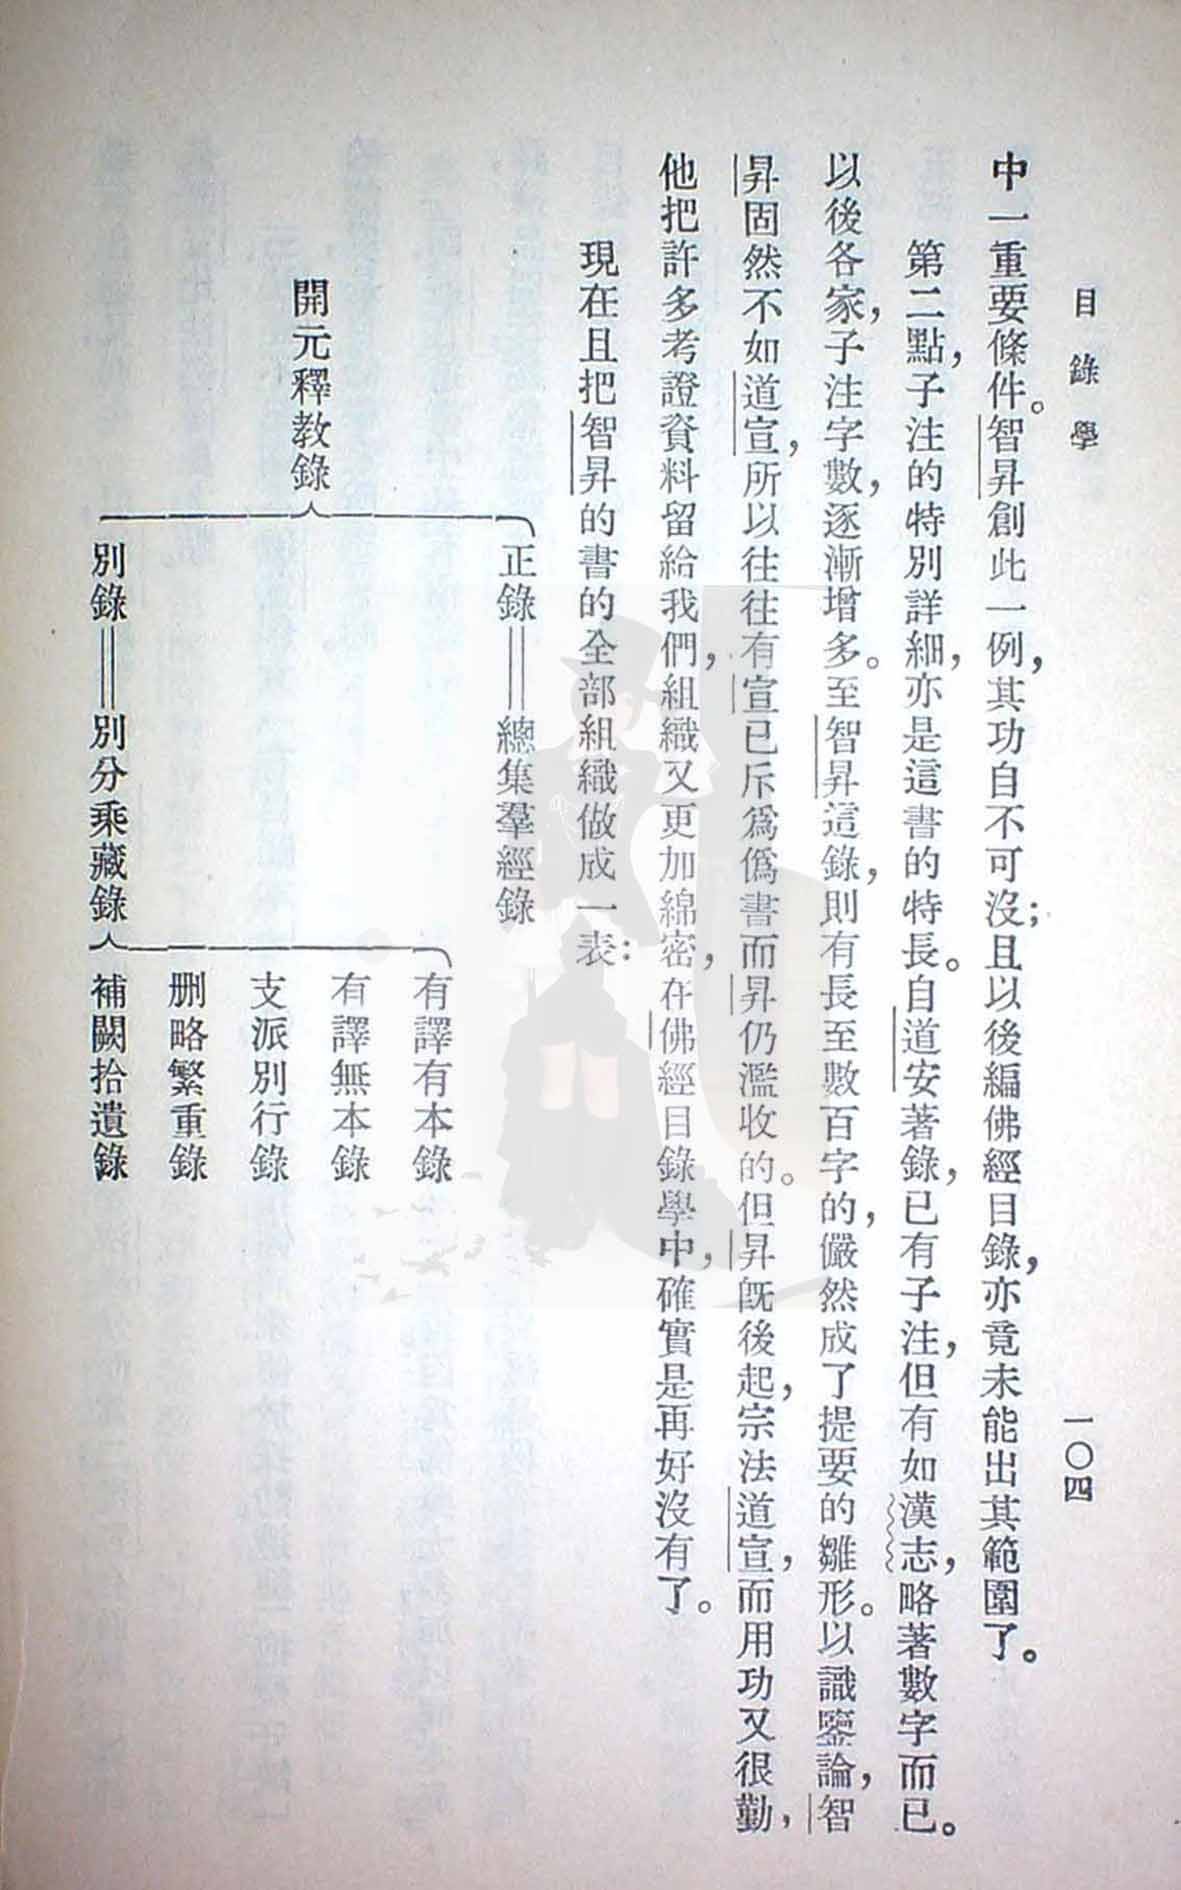 目錄學
一〇四
中一重要條件。智昇創此一例，其功自不可沒；且以後編佛經目錄，亦竟未能出其範圍了。
第二點，子注的特別詳細，亦是這書的特長。自道安著錄，已有子注，但有如漢志，略著數字而已。
以後各家，子注字數，逐漸增多。至智昇這錄，則有長至數百字的，儼然成了提要的雛形。以識鑒論，智
昇固然不如道宣，所以往往有宣已斥爲僞書而昇仍濫收的。但昇既後起，宗法道宣，而用功又很勤，
他把許多考證資料留給我們，組織又更加綿密，在佛經目錄學中，確實是再好沒有了。
現在且把智昇的書的全部組織做成一表：
開元釋教錄
正錄＝總集羣經錄
別錄＝別分乘藏錄
有譯有本錄
有譯無本錄
支派別行錄
刪略繁重錄
補闕拾遺錄